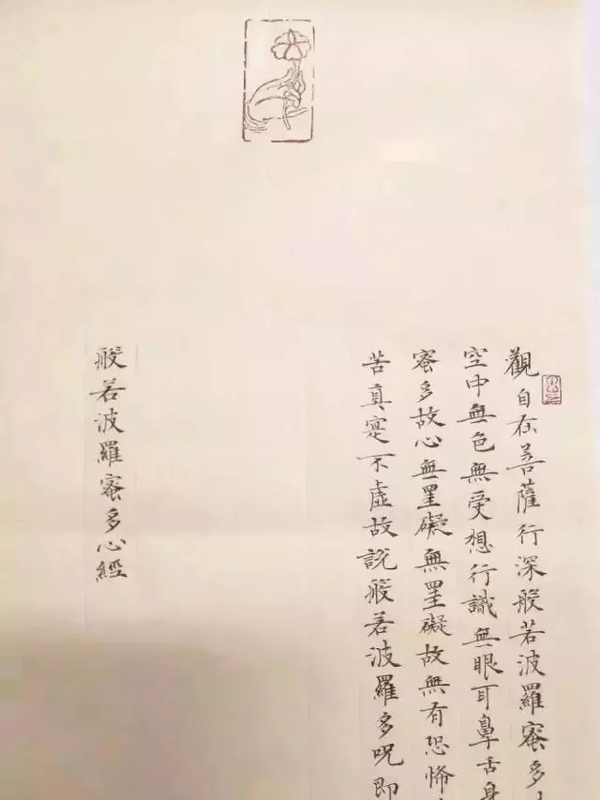 觀自在菩薩行深般若波羅蜜多
空中無色無受想行識無眼耳鼻舌身
蜜多故心無罣礙無罣礙故無有恐怖
苦真寔不虛故說般若波羅多呪即
般若波羅蜜多心經